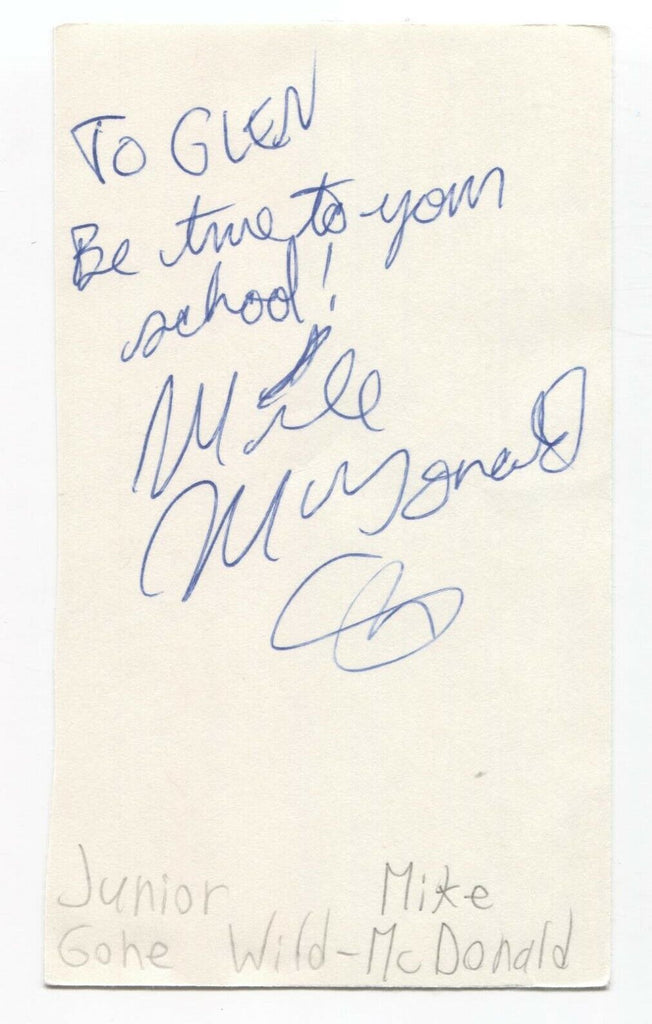 TO GLEN
Be true to your
school!
Mike
McDonald
Junior Mike
Gone Wild-McDonald